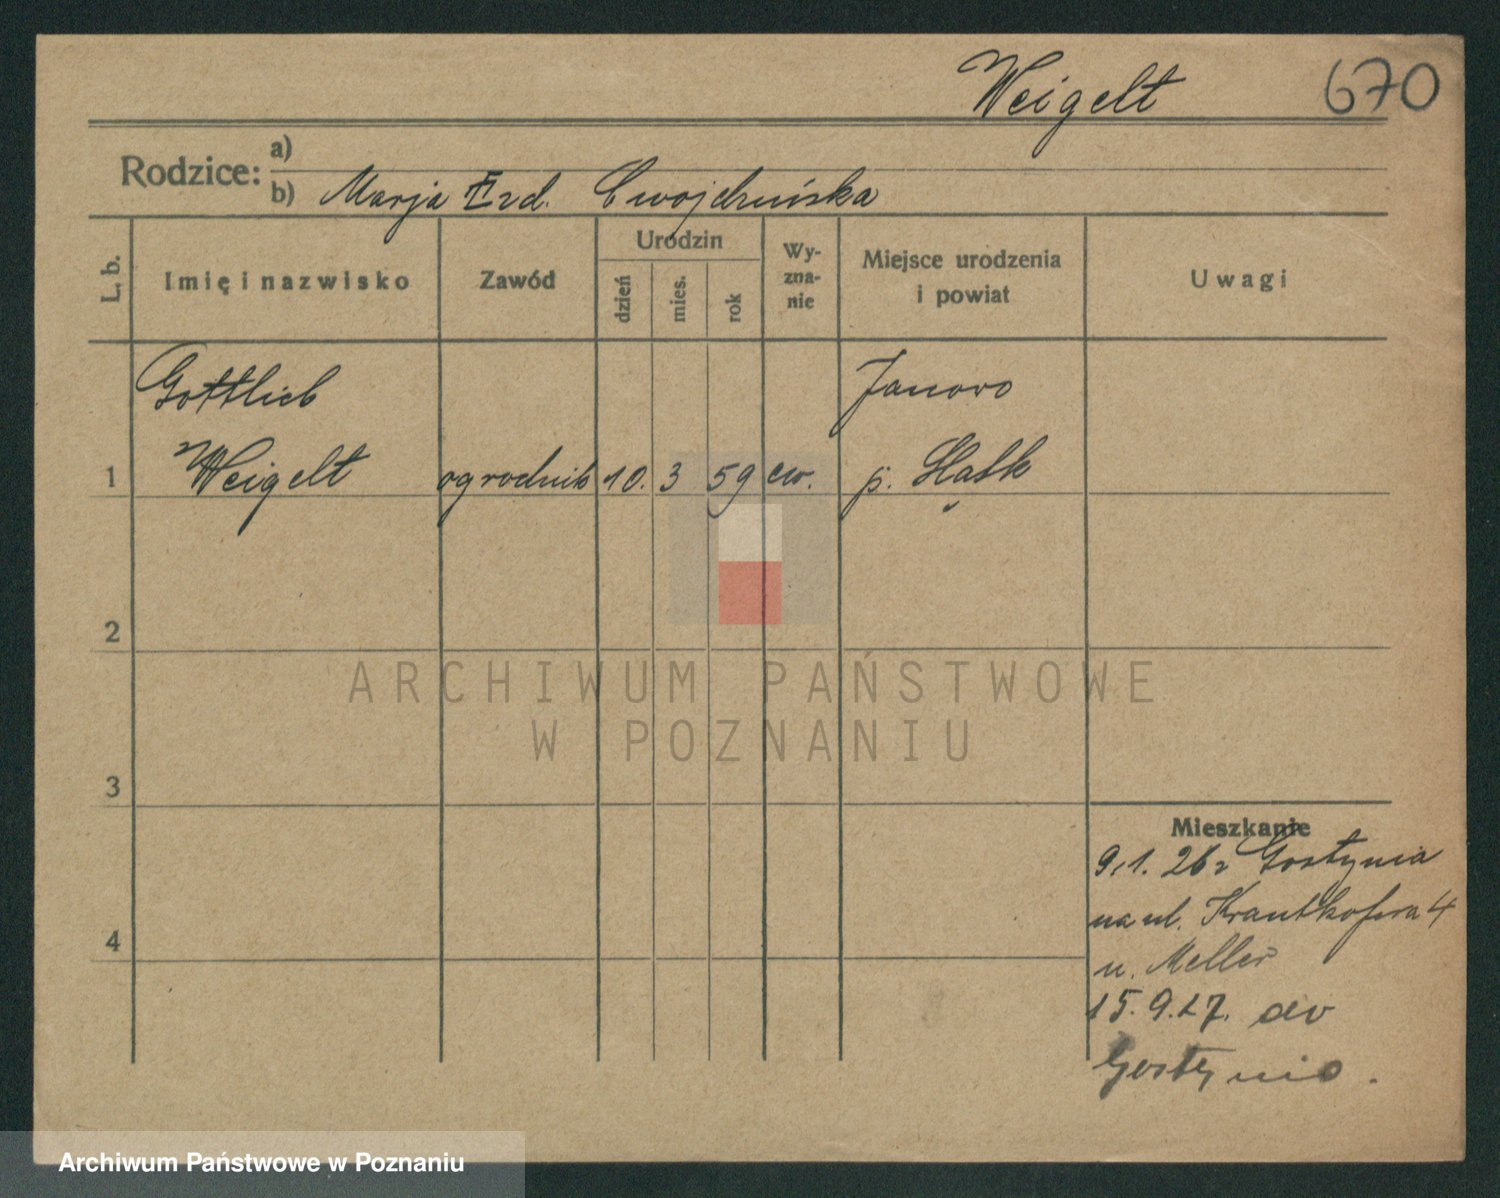 Weigelt 670
Rodzice: a)
b) Marja zd. Cwojdzińska
L. b. Imię i nazwisko Zawód Urodzin dzień mies. rok Wyznanie Miejsce urodzenia i powiat Uwagi
Gottlieb Janowo
1 Weigelt ogrodnik 10. 3 59 ew. p.
2
3
4
Mieszkanie
9.1. 26 z Gostynia
na ul. 4
u. Meller
15.9.27. do
Gostynia.
ARCHIWUM PAŃSTWOWE
W POZNANIU
Archiwum Państwowe w Poznaniu